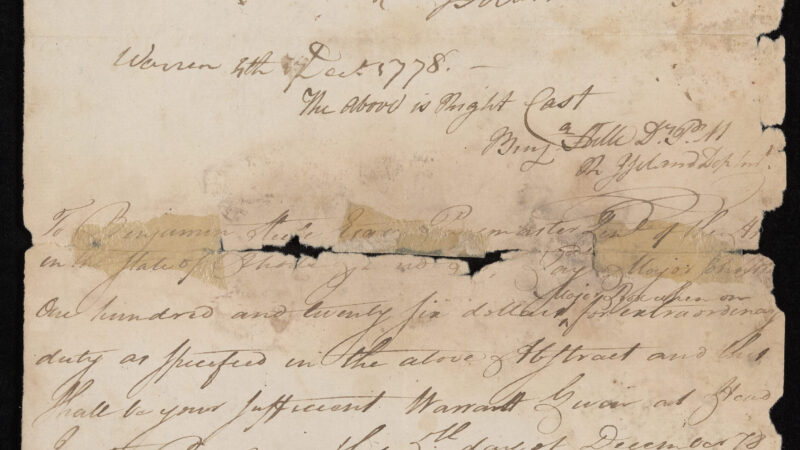 Warren 4th Decr 1778. —
The Above is Right Cast
Benja Stelle D. P. M
Rh Island Dep'mt
To Benjamin Stelle Esqr Paymaster of the
in the State of Rhode Pay Major
Major on
One hundred and twenty six dollars for extraordinary
duty as specifeed in the above Abstract and this
Shall be your sufficient Warrant Given at Head
the 5th day of December 78